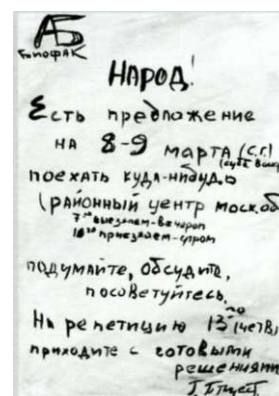 АБ
БИОФАК
НАРОД!
Есть предложение
на 8-9 марта (с.г.)
(субб воскр
поехать куда-нибудь
(районный центр моск. об
7³⁰ выезжаем-вечером
10³⁰ приезжаем-утром
подумайте, обсудите,
посоветуйтесь.
На репетицию 13го (четв)
приходите с готовыми
решениями